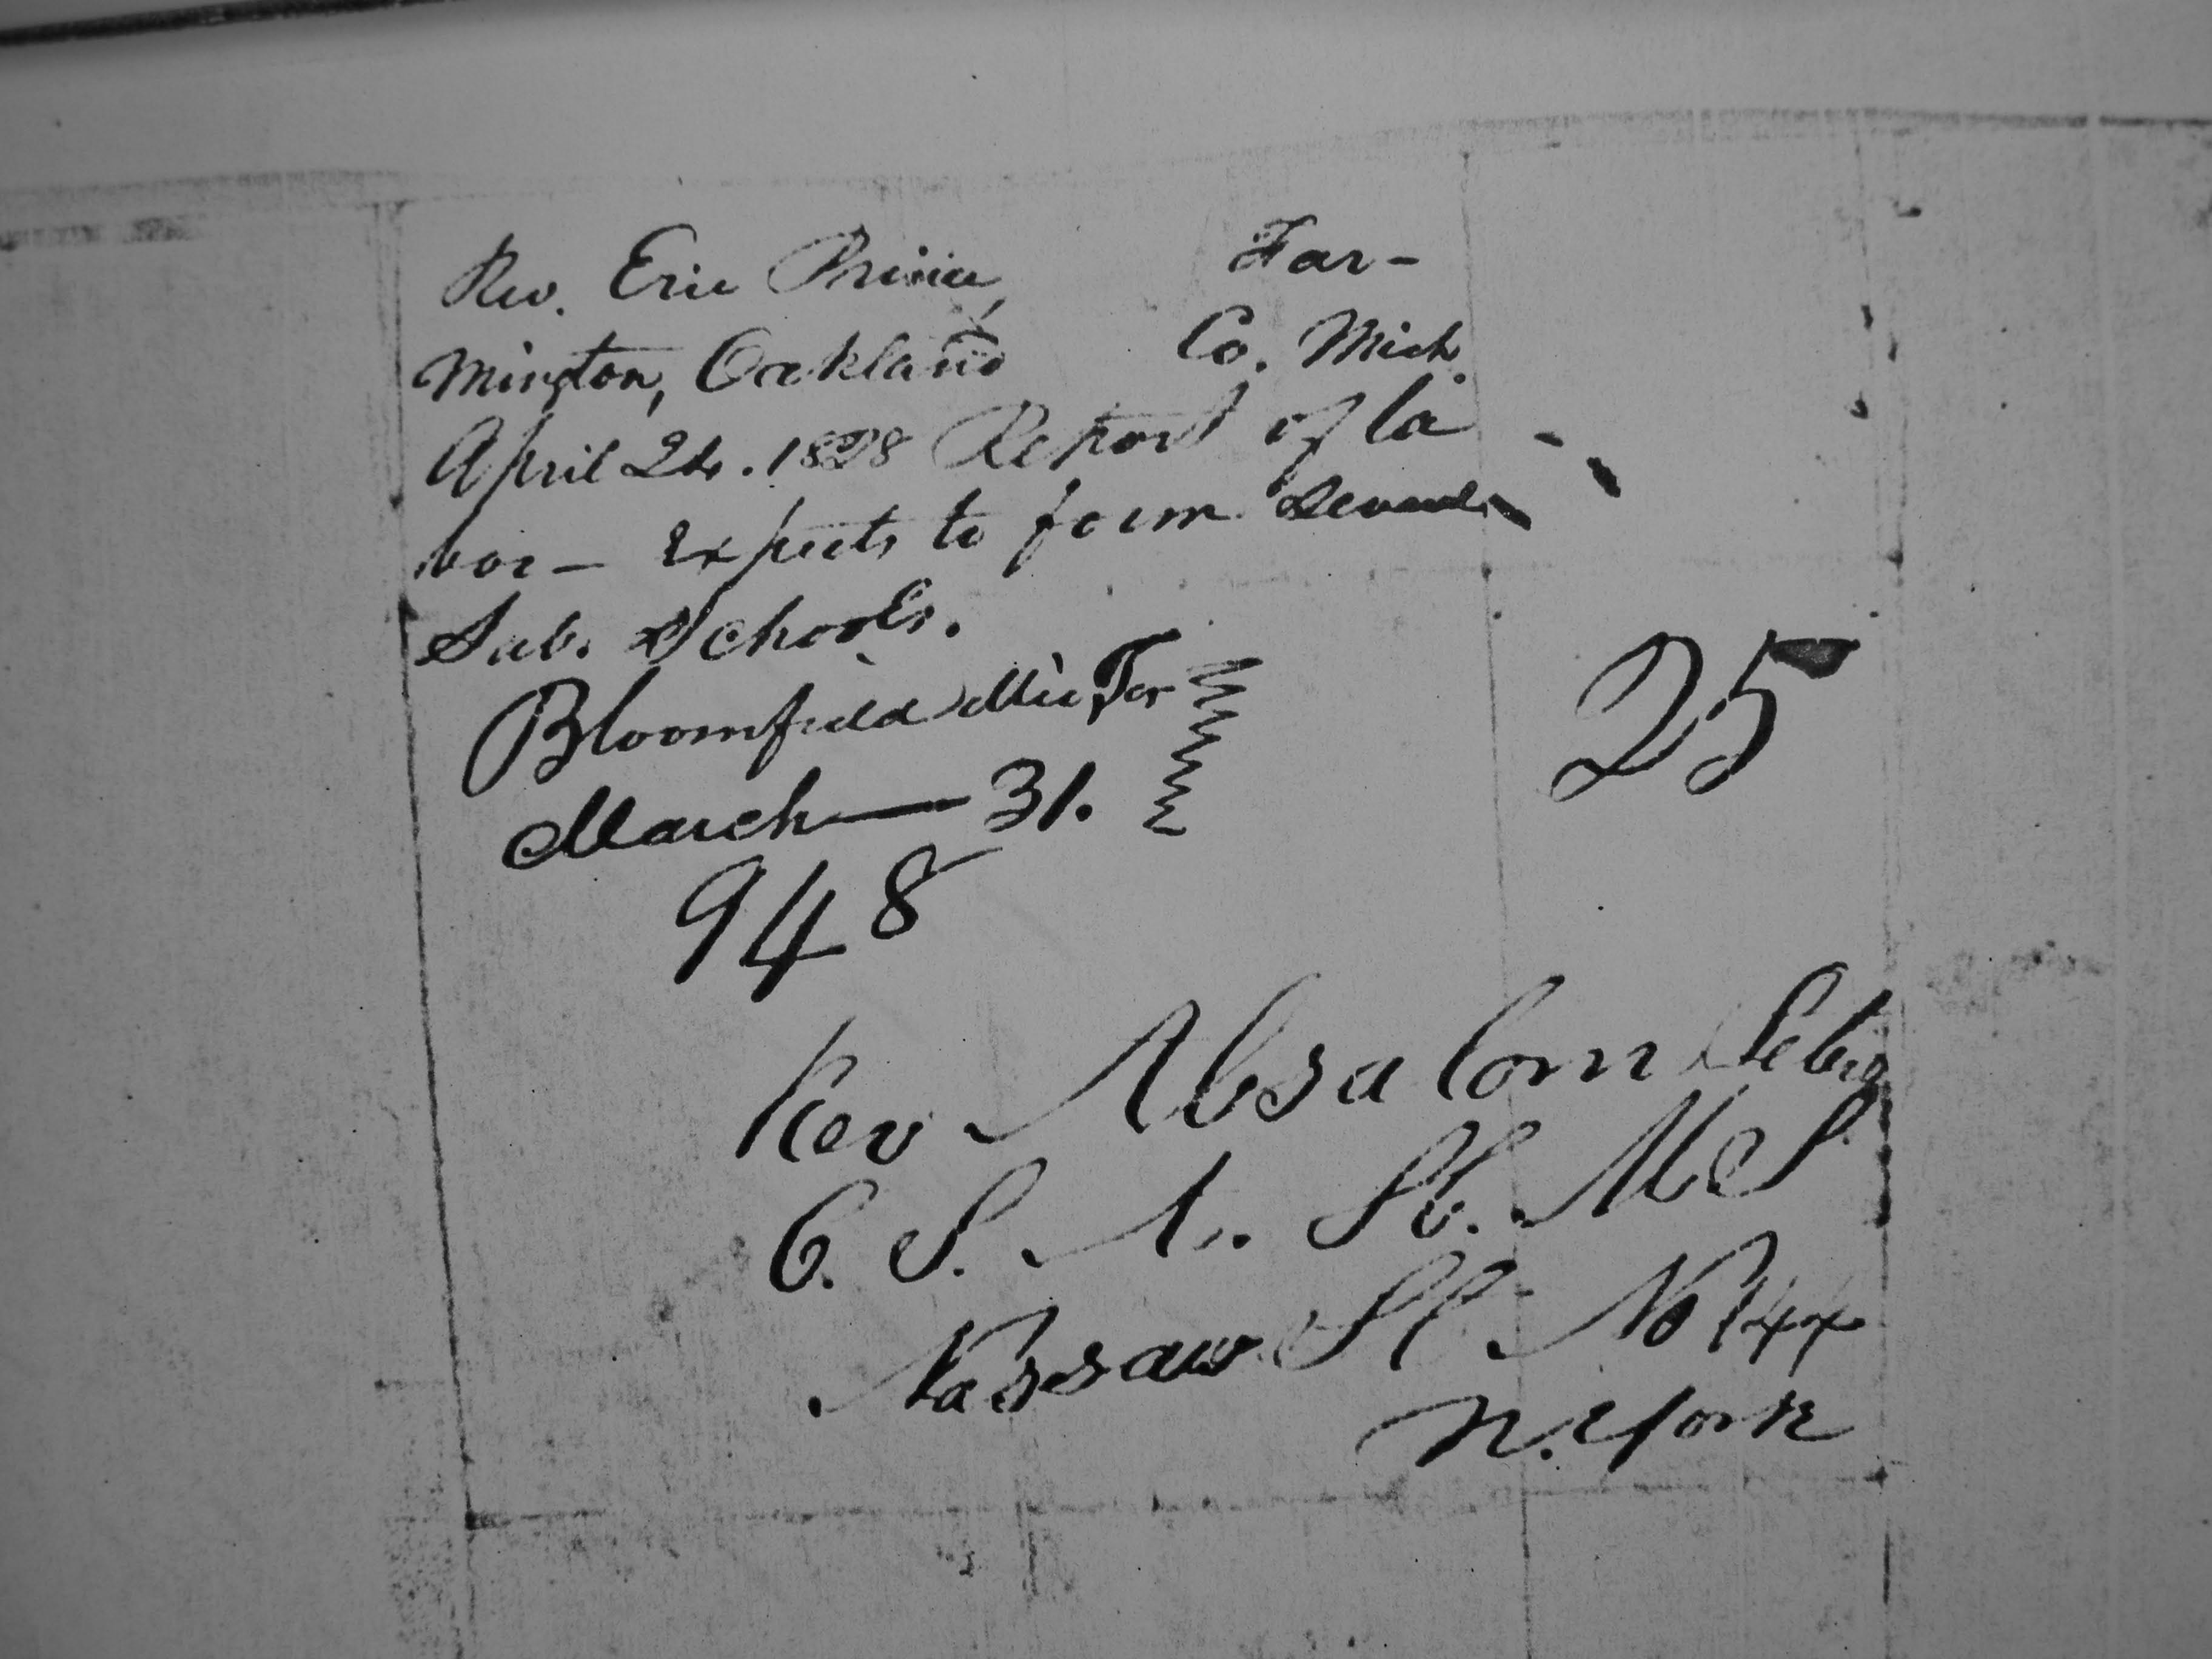 Rev. Eric Prince, Far-
mington, Oakland Co. Mich.
April 24. 1828 Report of la
bor - Expects to form several
Sab. Schools.
Bloomfield Mic Ter
March — 31.
25
948
Rev Absalom Peters
C. S. A. H. M. S.
Nassaw St. No 144
N. York